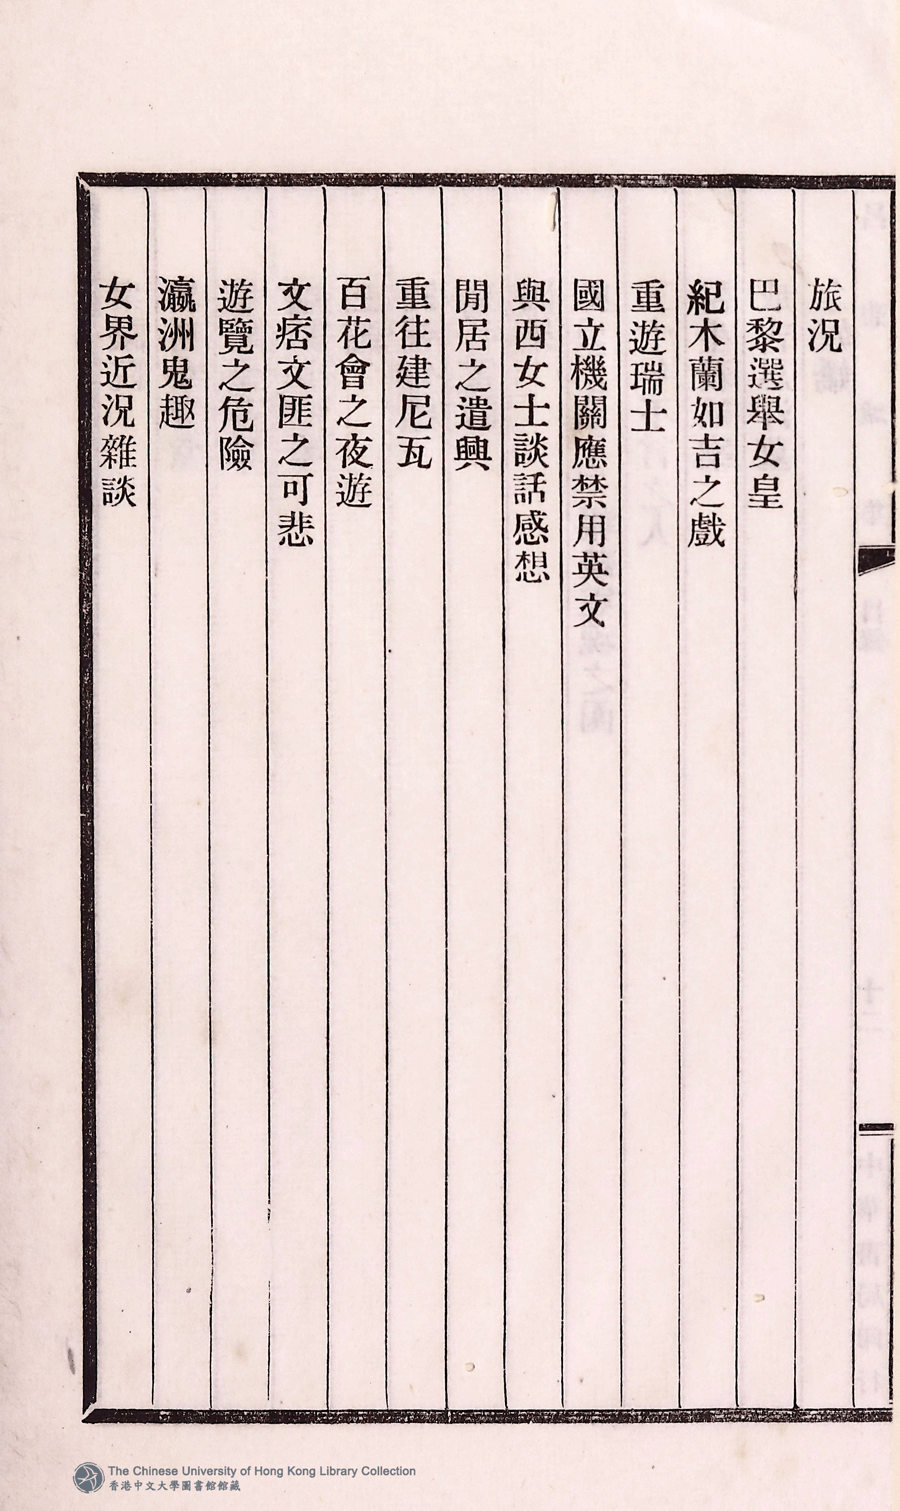 旅況
巴黎選舉女皇
紀木蘭如吉之戲
重遊瑞士
國立機關應禁用英文
與西女士談話感想
閒居之遣興
重往建尼瓦
百花會之夜遊
文痞文匪之可悲
遊覽之危險
瀛洲鬼趣
女界近況雜談
The Chinese University of Hong Kong Library Collection
香港中文大學圖書館館藏